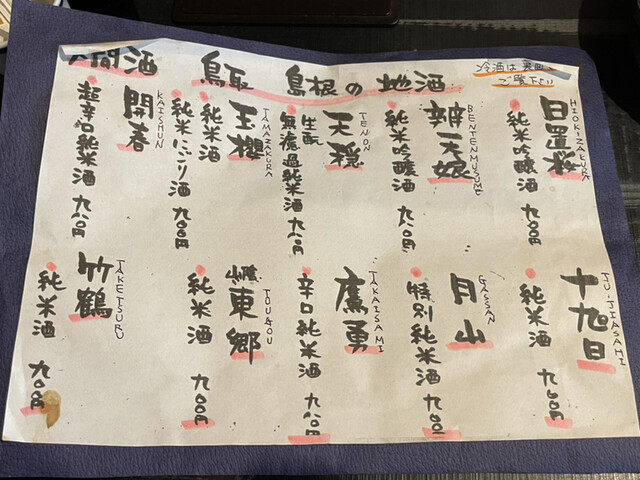 燗酒 鳥取 島根の地酒
冷酒は裏面を
ご覧下さい
HIOKIZAKURA
日置桜
純米吟醸酒 九〇〇円
BENTENMUSUME
辨天娘
純米吟醸酒 九八〇円
TENON
天穏
生酛
無濾過純米酒 九八〇円
TAMAZAKURA
玉櫻
純米酒
純米にごり酒 九〇〇円
KAISHUN
開春
超辛口純米酒 九八〇円
JU-JIASAHI
十旭日
純米酒 九〇〇円
GASSAN
月山
特別純米酒 九〇〇円
TAKAISAMI
鷹勇
辛口純米酒 九八〇円
TOUGOU
山陰東郷
純米酒 九〇〇円
TAKETSURU
竹鶴
純米酒 九〇〇円